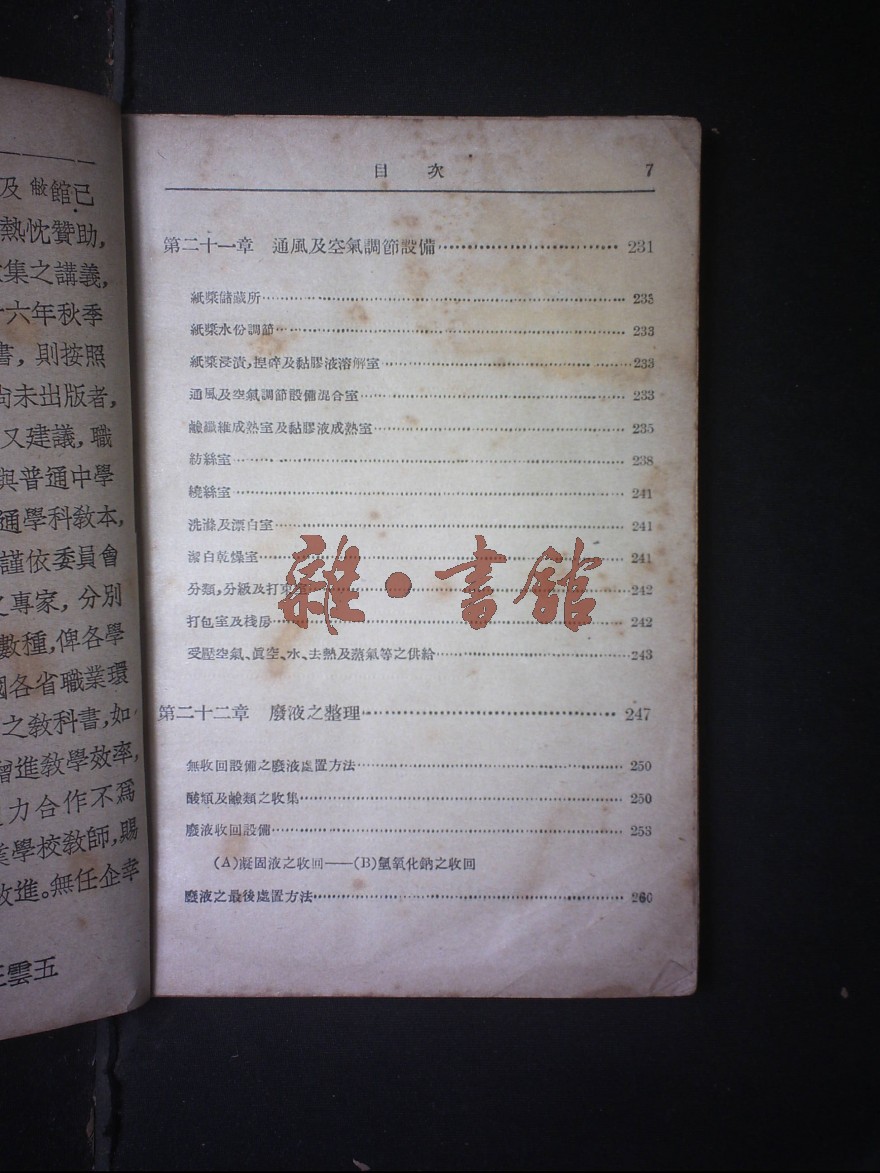 及敝館已
熱忱贊助,
集之講義,
十六年秋季
書,則按照
尚未出版者,
又建議,職
與普通中學
通學科敎本,
謹依委員會
之專家,分別
數種,俾各學
國各省職業環
之敎科書,如
增進敎學效率,
力合作不爲
業學校敎師,賜
改進。無任企幸
王雲五
目 次 7
第二十一章 通風及空氣調節設備 231
紙漿儲藏所 233
紙漿水份調節 233
紙漿浸漬,捏碎及黏膠液溶解室 233
通風及空氣調節設備混合室 233
鹼纖維成熟室及黏膠液成熟室 235
紡絲室 238
繞絲室 241
洗滌及漂白室 241
潔白乾燥室 241
分類,分級及打束室 242
打包室及棧房 242
受壓空氣、眞空、水、去熱及蒸氣等之供給 243
第二十二章 廢液之整理 247
無收回設備之廢液處置方法 250
酸類及鹼類之收集 250
廢液收回設備 253
(A)凝固液之收回——(B)氫氧化鈉之收回
廢液之最後處置方法 260
雜·書館